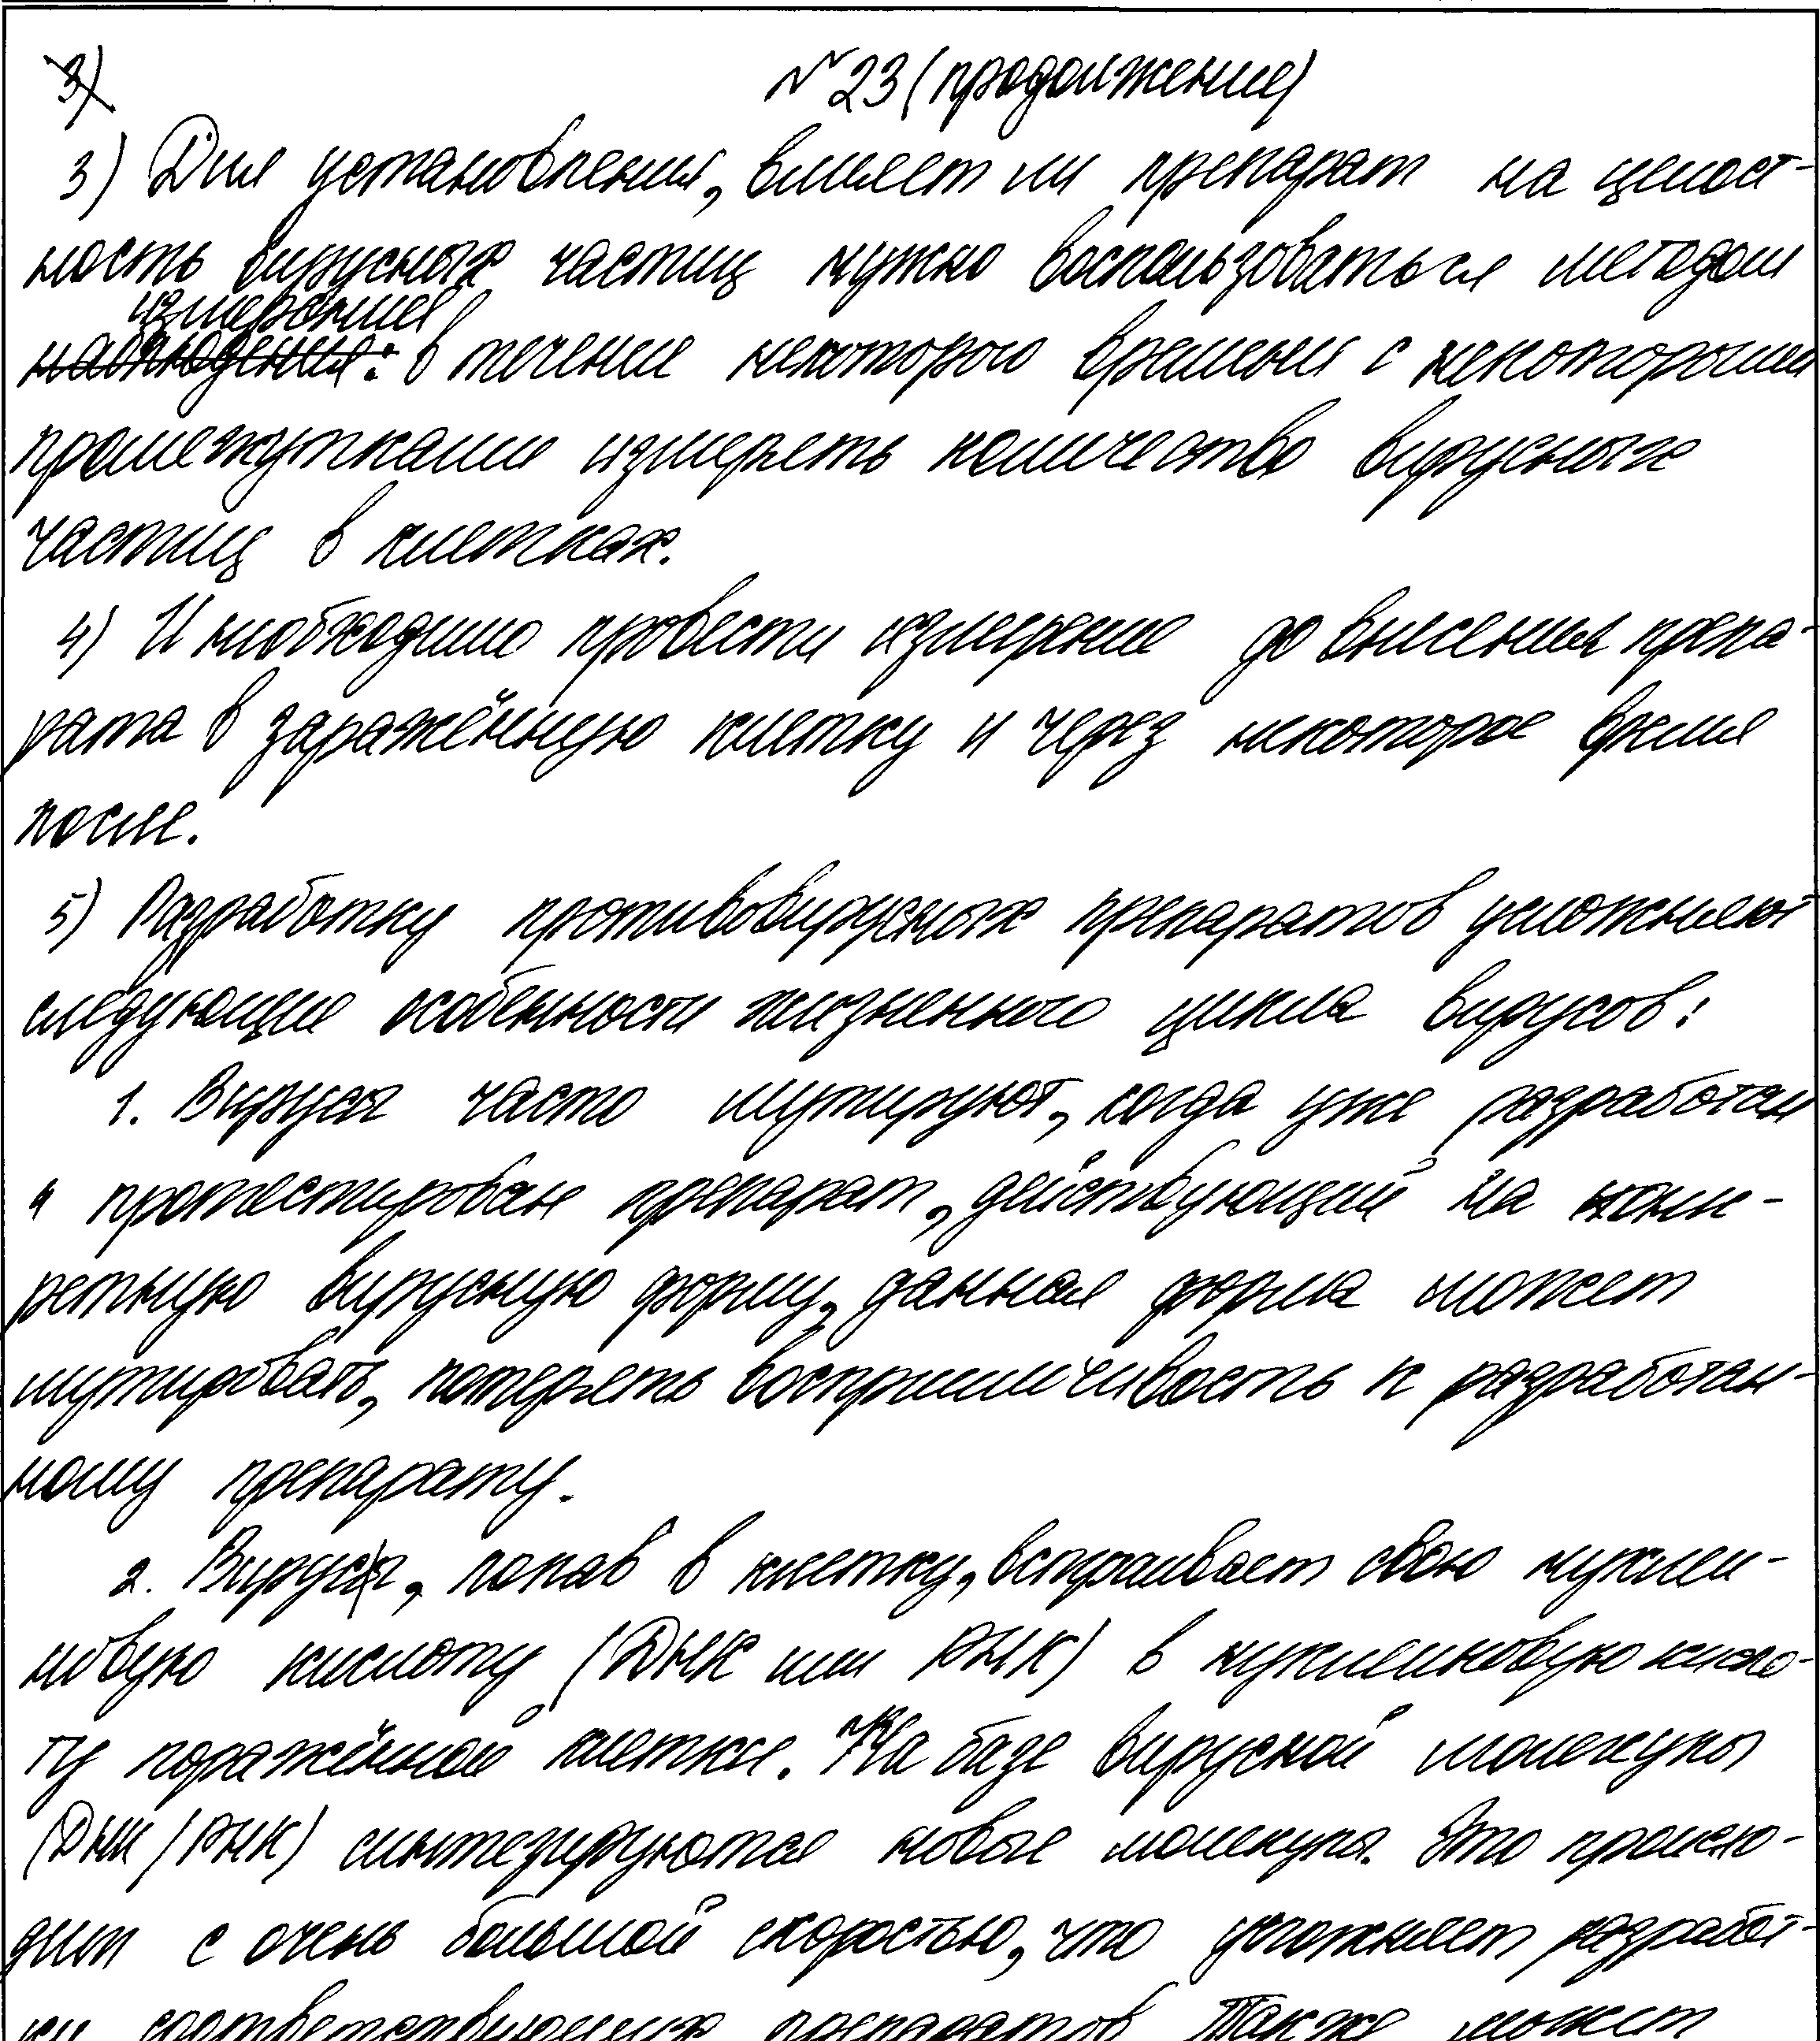 №23 (продолжение)
3) Для установления, влияет ли препарат на целост-
ность вирусных частиц нужно воспользоваться методом
измерения
наблюдения: в течение некоторого времени с некоторыми
промежутками измерять количество вирусных
частиц в клетках.
4) И необходимо провести измерение до внесения препа-
рата в заражённую клетку и через некоторое время
после.
5) Разработку противовирусных препаратов усложняют
следующие особенности жизненного цикла вирусов:
1. Вирусы часто мутируют, когда уже разработан
и протестирован препарат, действующий на конк-
ретную вирусную форму, данная форма может
мутировать, потерять восприимчивость к разработан-
ному препарату.
2. Вирус, попав в клетку, встраивает свою нуклеи-
новую кислоту (ДНК или РНК) в нуклеиновую кисло-
ту поражённой клетки. На базе вирусной молекулы
(ДНК/РНК) синтезируются новые молекулы. Это происхо-
дит с очень большой скоростью, что усложняет разработ-
ки соответствующих препаратов. Также может